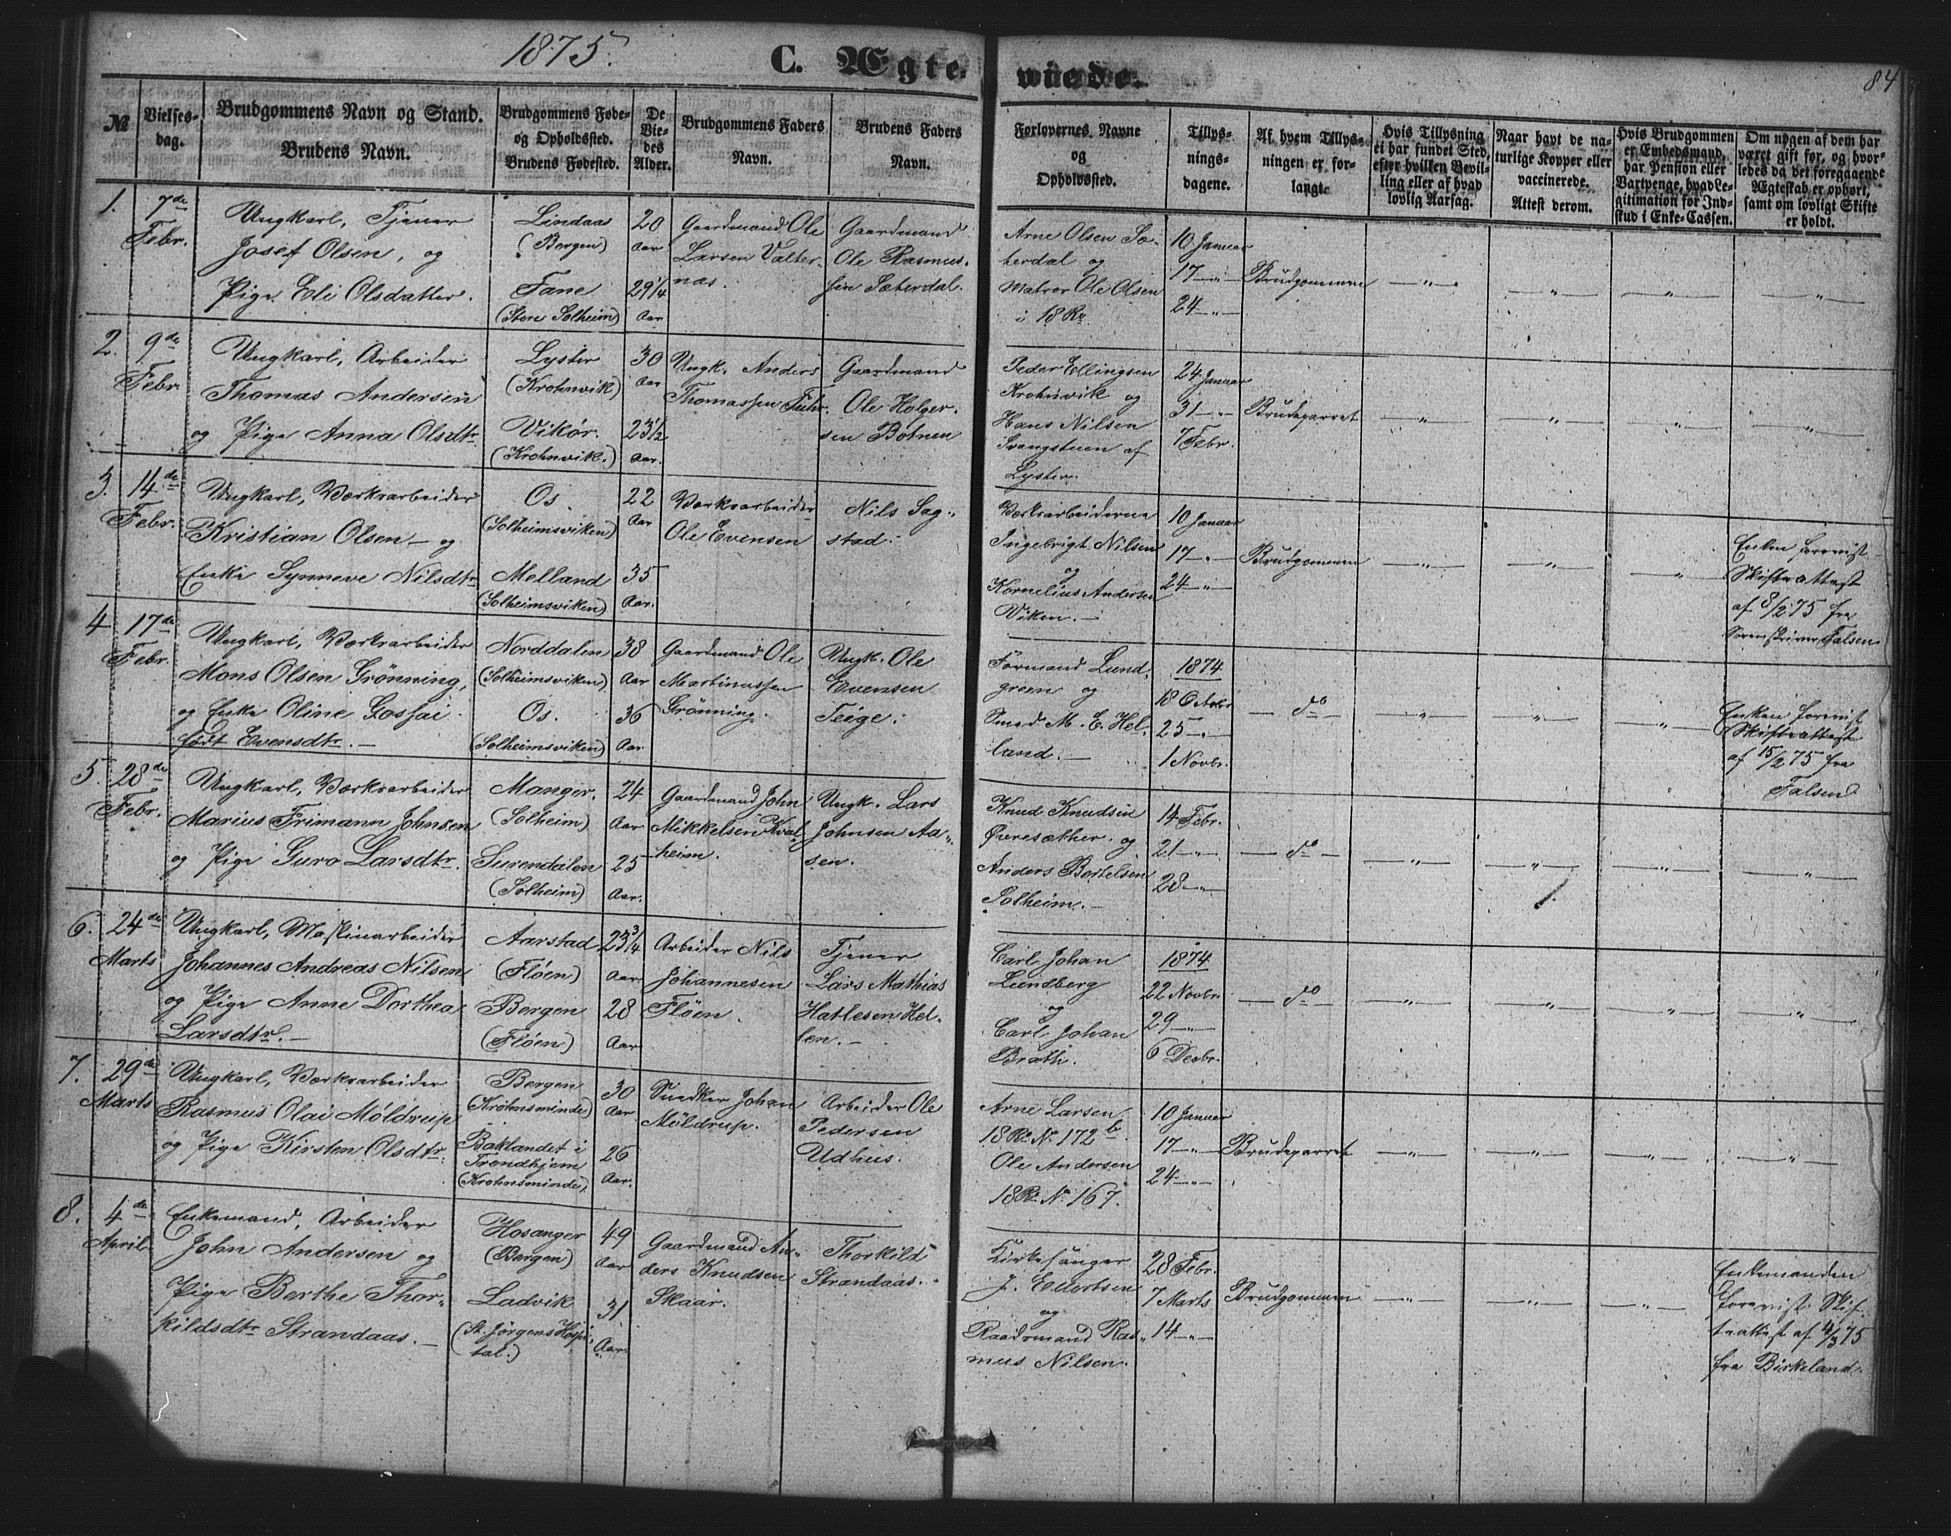 1875.
C. Ægteviede.
84
№
Vielses-
dag.
Brudgommens Navn og Stand.
Brudens Navn.
Brudgommens Føde-
og Opholdssted.
Brudens Fødested.
De
Vie-
des
Alder.
Brudgommens Faders
Navn.
Brudens Faders
Navn.
Forlovernes Navne
og
Opholdssted.
Tillys-
nings-
dagene.
Af hvem Tillys-
ningen er for-
langt.
Hvis Tillysning
ei har fundet Sted,
efter hvilken Bevil-
ling eller af hvad
lovlig Aarsag.
Naar havt de na-
turlige Kopper eller
vaccinerede.
Attest derom.
Hvis Brudgommen
er Embedsmand,
har Pension eller
Vartpenge, hvad Le-
gitimation for Ind-
skud i Enke-Cassen.
Om nogen af dem har
været gift før, og hvor-
ledes da det foregaaende
Ægteskab er ophørt,
samt om lovligt Skifte
er holdt.
1.
7de
Febr.
Ungkarl, Tjener
Josef Olsen, og
Pige Eli Olsdatter.
Lindaas
(Bergen)
Fane
(Store Solheim)
20
Aar
29 1/4
Aar
Gaardmand Ole
Larsen Valter-
nas.
Gaardmand
Ole Rasmus-
sen Sæterdal.
Arne Olsen Sæ-
terdal og
Matros Ole Olsen
i 18 Re
10 Januar
17 — " —
24 — " —
Brudgommen
— " —
— " —
— " —
— " —
2.
9de
Febr.
Ungkarl, Arbeider
Thomas Andersen
og Pige Anna Olsdtr.
Lyster
(Krohnvik)
Vikør.
(Krohnvik.)
30
Aar
23 1/2
Aar.
Ungk. Anders
Thomassen Fuhr.
Gaardmand
Ole Holger-
sen Botnen
Peder Ellingsen
Krohnvik og
Hans Nilsen
Svangstuen af
Lyster.
24 Januar
31 — " —
7 Febr.
Brudeparret
— " —
— " —
— " —
— " —
3.
14de
Febr.
Ungkarl, Værksarbeider
Kristian Olsen — og
Enke Synneve Nilsdtr.
Os.
(Solheimsviken)
Melland
(Solheimsviken)
22
Aar
35
Aar.
Værksarbeider
Ole Evensen
Nils Sag-
stad.
Værksarbeiderne
Ingebrigt Nilsen
og
Kornelius Andersen
Viken. —
10 Januar
17 — " —
24 — " —
Brudgommen
— " —
— " —
— " —
Enken forevist
Skifteattest
af 8/2 75 fra
Sorenskriver Falsen
4
17de
Febr.
Ungkarl, Værksarbeider
Mons Olsen Grönning,
og Enke Oline Gossai
født Evensdtr. —
Norddalen
(Solheimsviken)
Os.
(Solheimsviken)
38
Aar
36
Aar
Gaardmand Ole
Martinussen
Grönning.
Ungk. Ole
Evensen
Teige.
Formand Lund-
green og
Smed M. E. Hel-
land. —
1874
18 Octobr
25 — " —
1 Novbr.
— do —
— " —
— " —
— " —
Enken forevist
Skifteattest
af 15/2 75 fra
Falsen
5.
28de
Febr.
Ungkarl, Værksarbeider
Marius Frimann Johnsen
og Pige Guro Larsdtr.
Manger.
(Solheim)
Surendalen
(Solheim)
24
Aar
25
Aar.
Gaardmand John
Mikkelsen Kval-
heim.
Ungk. Lars
Johnsen Aa-
sen.
Knud Knudsen
Øvresæther. og
Anders Bertelsen
Solheim. —
14 Febr.
21 — " —
28 — " —
— do —
— " —
— " —
— " —
— " —
6.
24de
Marts
Ungkarl, Maskinarbeider
Johannes Andreas Nilsen
og Pige Anne Dorthea
Larsdtr. —
Aarstad
(Fløen)
Bergen
(Fløen)
23 3/4
Aar
28
Aar
Arbeider Nils
Johannesen
Fløen.
Tjener
Lars Mathias
Hatlesen Hel-
len. —
Carl Johan
Lundberg
og
Carl Johan
Bråth.
1874
22 Novbr.
29 — " —
6 Decbr.
— do —
— " —
— " —
— " —
— " —
7.
29de
Marts
Ungkarl, Værksarbeider
Rasmus Olai Möldrup
og Pige Kirsten Olsdtr.
Bergen
(Krohnsminde)
Baklandet i
Trondhjem
(Krohnsminde)
30
Aar
26
Aar.
Snedker Johan
Möldrup.
Arbeider Ole
Pedersen
Udhus.
Arne Larsen
18 Re No 172 b.
Ole Andersen
18 Re No 167.
10 Januar
17 — " —
24 — " —
Brudeparret
— " —
— " —
— " —
— " —
8.
4de
April
Enkemand, Arbeider
John Andersen og
Pige Berthe Thor-
kildsdtr Strandaas. —
Hosanger
(Bergen)
Ladvik
(St. Jørgens Hospi-
tal.)
49
Aar
31
Aar.
Gaardmand An-
ders Knudsen
Skaar.
Thorkild
Strandaas.
Kirkesanger
J. Eilertsen
og
Raadsmand Ras-
mus Nilsen.
28 Febr.
7 Marts
14 — " —
Brudgommen
— " —
— " —
— " —
Enkemanden
forevist Skif-
teattest af 4/3 75
fra Birkeland.